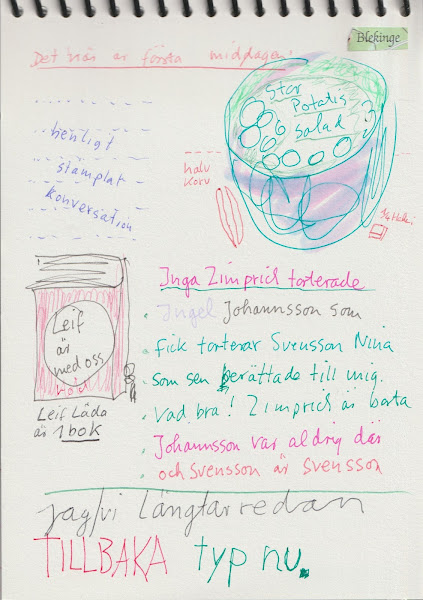 Blekinge
Det här är första middagen:
Stor
Potatis
salad
hemligt
stämplat
konversation
halv
korv
Inga Zimprich torterade
Ingel Johannsson som
fick torterar Svensson Nina
som sen berättade till mig.
Vad bra! Zimprich är borta
Johannsson var aldrig där
och Svensson är Svensson
Leif
är
med oss
röd
Leif Låda
är 1 bok
jag/vi längtar redan
TILLBAKA typ nu.